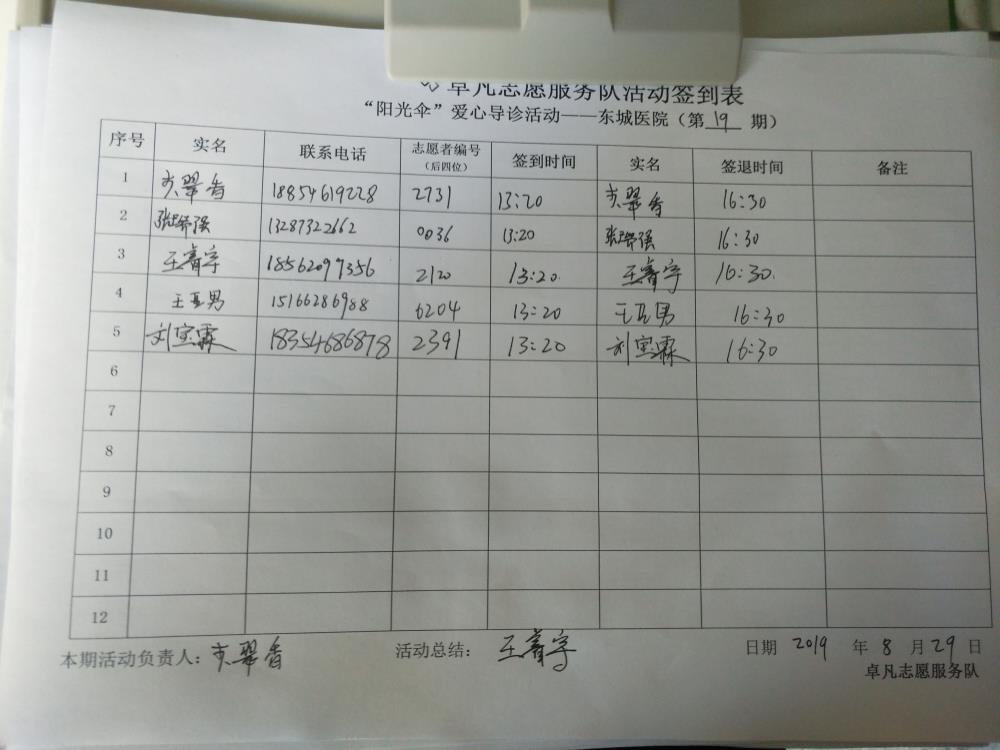 卓凡志愿服务队活动签到表
“阳光伞”爱心导诊活动——东城医院（第 19 期）
序号 实名 联系电话 志愿者编号（后四位） 签到时间 实名 签退时间 备注
1 翠香 18854619228 2731 13:20 翠香 16:30
2 张 强 13287322662 0036 13:20 张 强 16:30
3 王睿宇 18562097356 2120 13:20. 王睿宇 16:30.
4 王亚男 15166286988 6204 13:20 王亚男 16:30
5 刘宝霖 18354686878 2391 13:20 刘宝霖 16:30
6
7
8
9
10
11
12
本期活动负责人： 翠香 活动总结： 王睿宇 日期 2019 年 8 月 29 日
卓凡志愿服务队